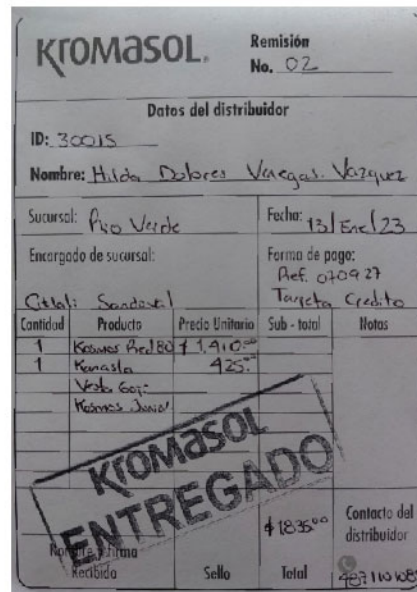 KROMASOL.
Remisión
No. 02
Datos del distribuidor
ID: 30015
Nombre: Hilda Dolores Venegas Vazquez
Sucursal: Rio Verde
Fecha: 13/Ene/23
Encargado de sucursal:
Citlali Sandoval
Forma de pago:
Ref. 070927
Tarjeta Credito
Cantidad Producto Precio Unitario Sub - total Notas
1 Kosmos Red 80 $ 1,410.00
1 Kanasta 425.00
Vesta Goji
Kosmos Junior
KROMASOL
ENTREGADO
$ 1835.00
Nombre y firma
Recibido
Sello
Total
Contacto del
distribuidor